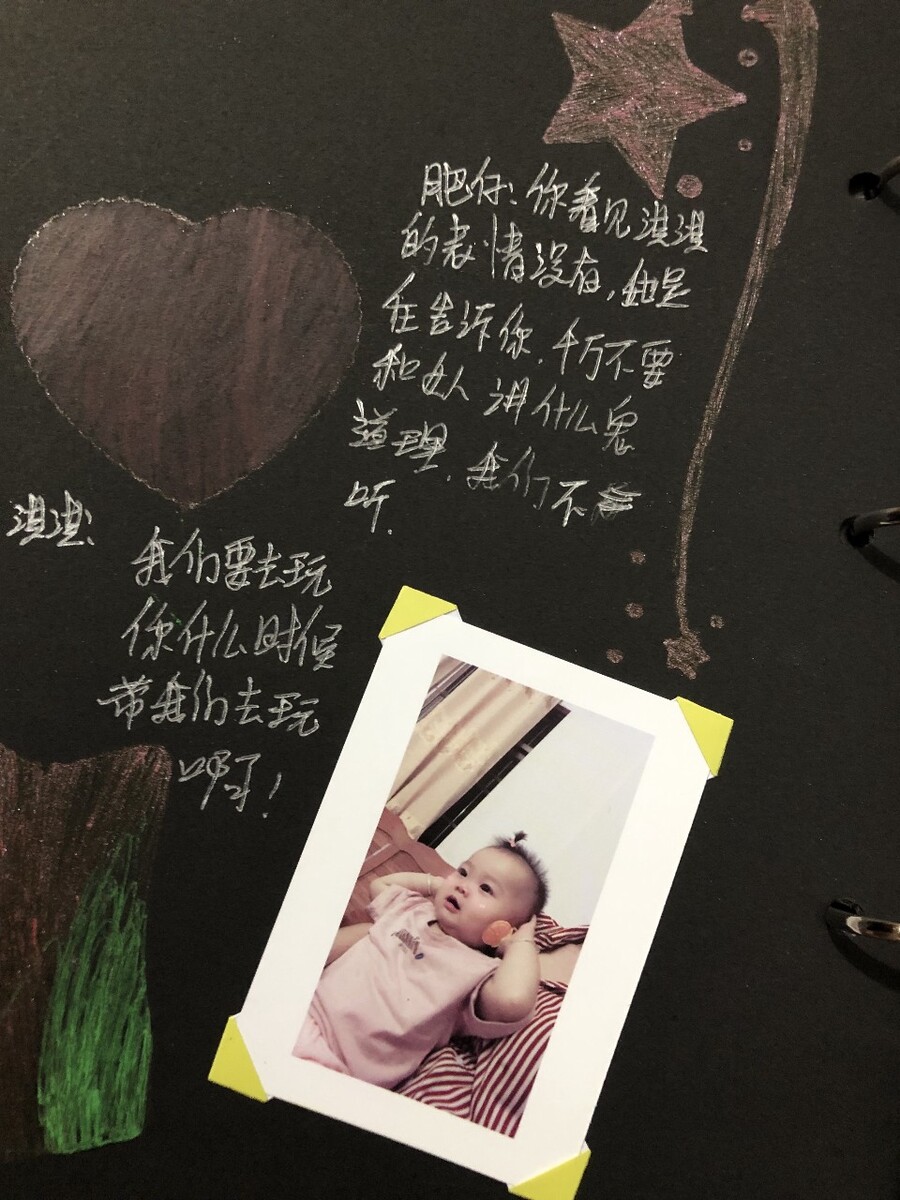 肥仔：你看见淇淇
的表情没有，她是
在告诉你，千万不要
和女人讲什么鬼
道理，我们不
听.
淇淇：
我们要去玩
你什么时候
带我们去玩
啊！